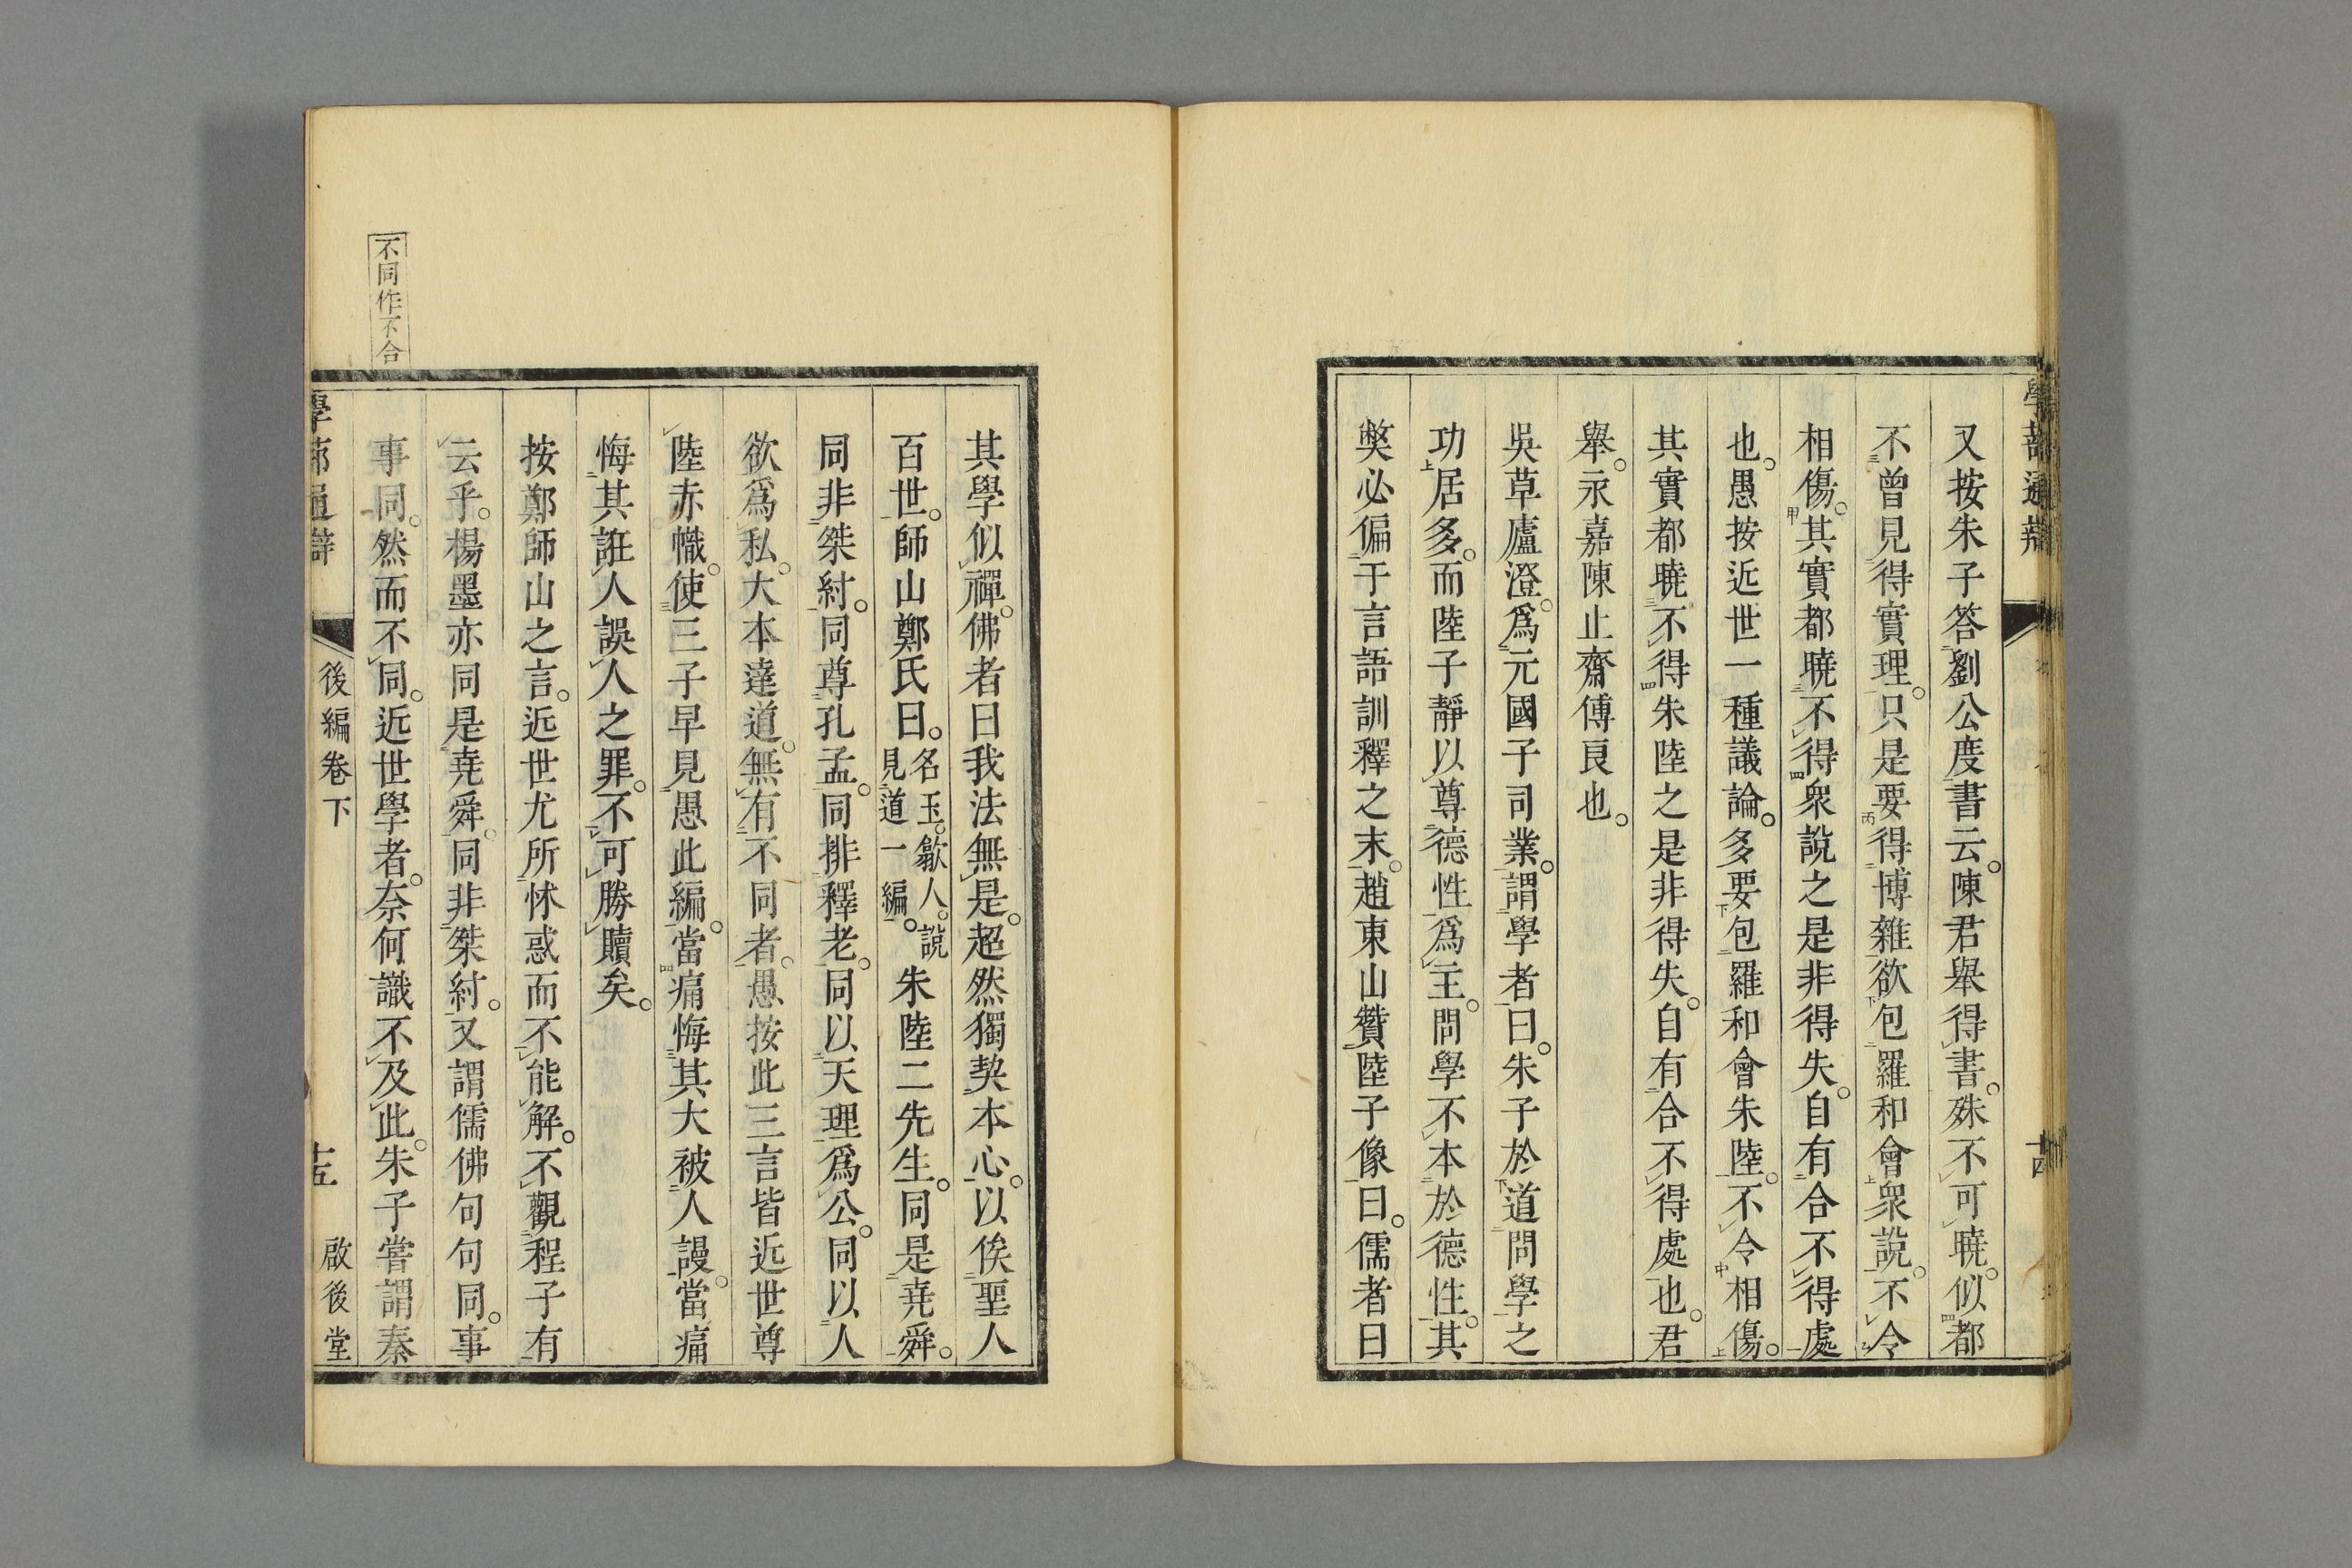 學蔀通辯
十四
又按朱子答劉公度書云。陳君舉得書。殊不可曉。似都
不曾見得實理。只是要得博雜欲包羅和會衆說。不令
相傷。其實都曉不得衆說之是非得失。自有合不得處
也。愚按近世一種議論。多要包羅和會朱陸。不令相傷。
其實都曉不得朱陸之是非得失。自有合不得處也。君
舉。永嘉陳止齋傅良也。
吳草廬澄。爲元國子司業。謂學者曰。朱子於道問學之
功居多。而陸子靜以尊德性爲主。問學不本於德性。其
獘必偏于言語訓釋之末。趙東山贊陸子像曰。儒者曰
其學似禪。佛者曰我法無是。超然獨契本心。以俟聖人
百世。師山鄭氏曰。名玉。歙人。說見道一編。朱陸二先生。同是堯舜。
同非桀紂。同尊孔孟。同排釋老。同以天理爲公。同以人
欲爲私。大本達道。無有不同者。愚按此三言皆近世尊
陸赤幟。使三子早見愚此編。當痛悔其大被人謾。當痛
悔其誑人誤人之罪。不可勝贖矣。
按鄭師山之言。近世尤所怵惑而不能解。不觀程子有
云乎。楊墨亦同是堯舜。同非桀紂。又謂儒佛句句同。事
事同。然而不同。近世學者。奈何識不及此。朱子嘗謂秦
不同作不合
學蔀通辯
後編卷下
十五
啟後堂